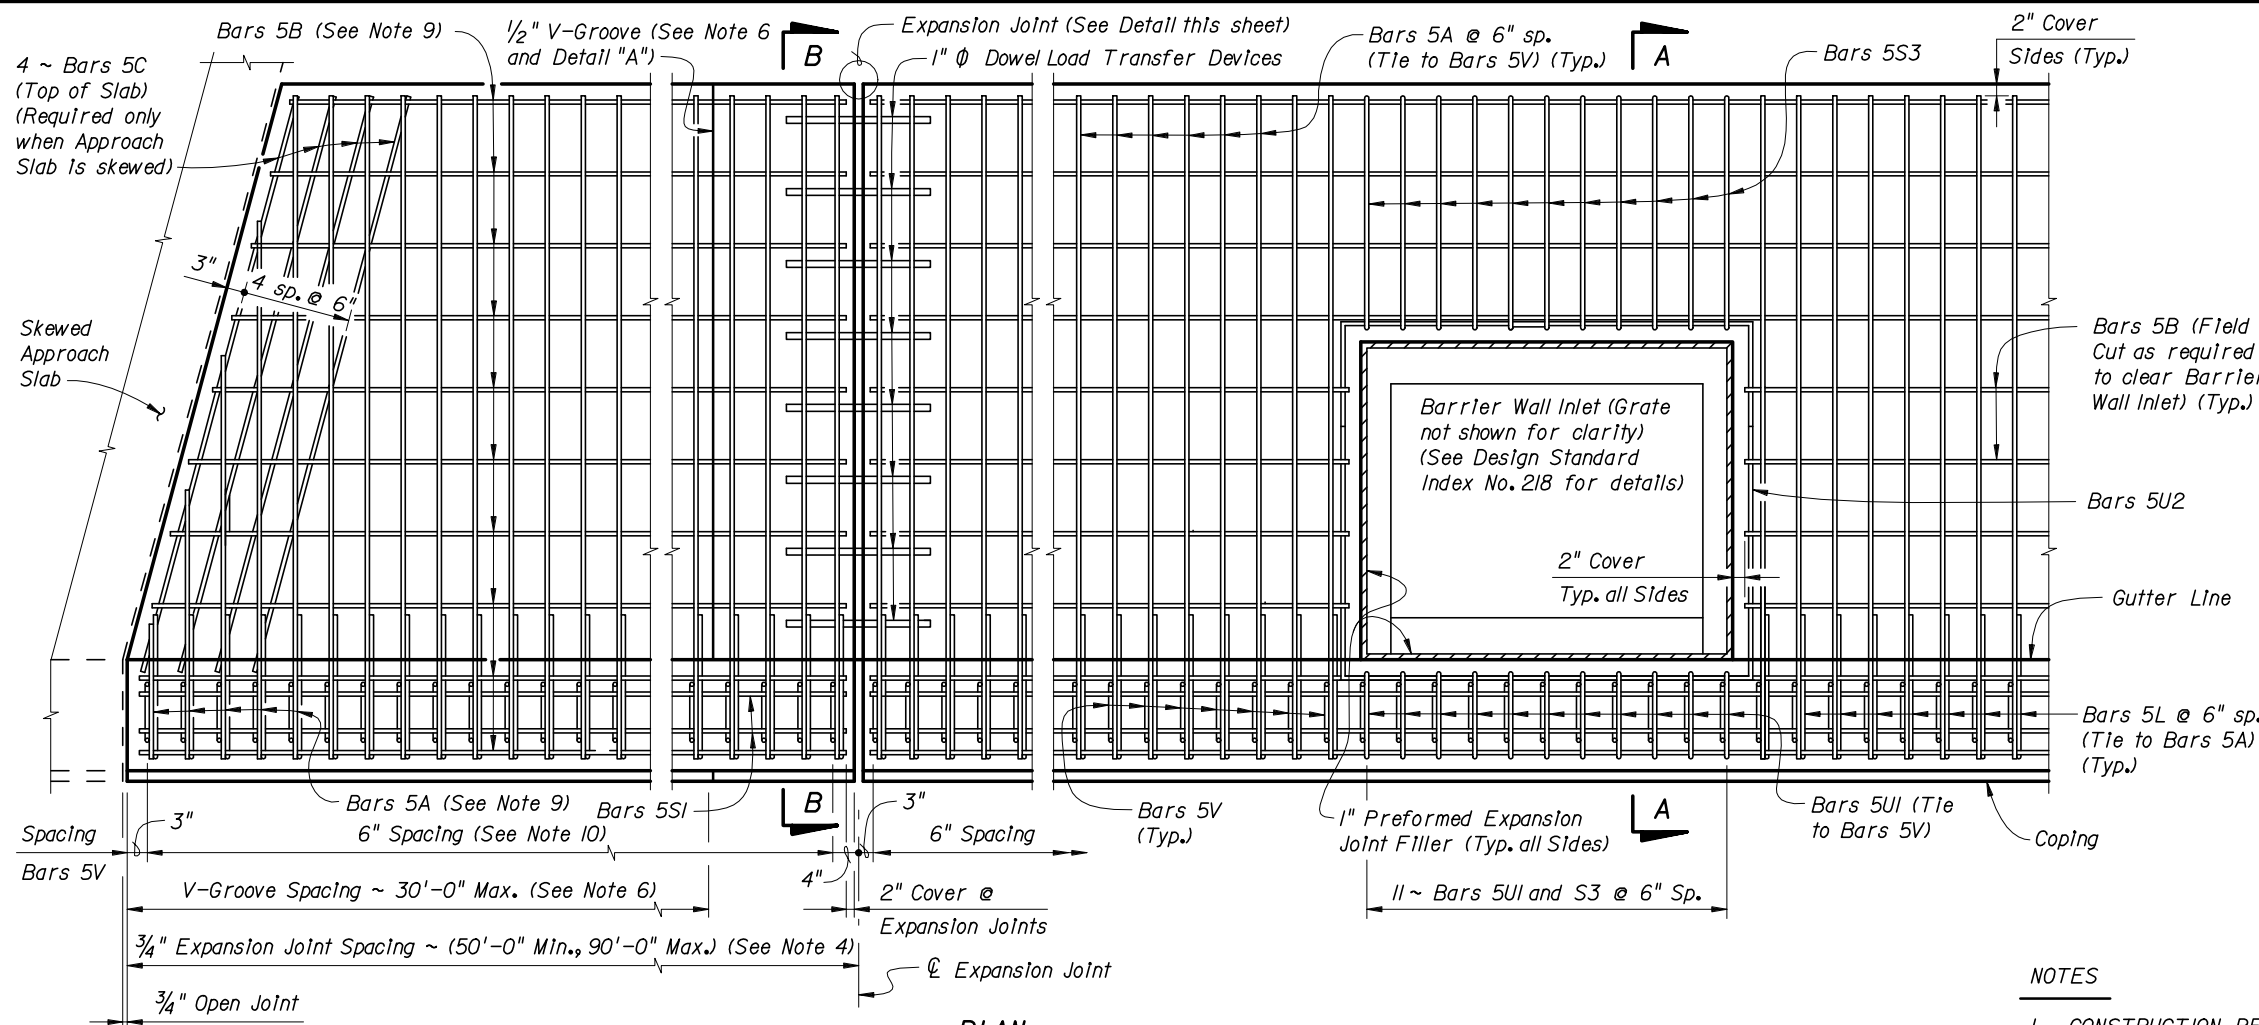 Bars 5B (See Note 9)
1/2" V-Groove (See Note 6
and Detail "A")
B
Expansion Joint (See Detail this sheet)
1" ϕ Dowel Load Transfer Devices
Bars 5A @ 6" sp.
(Tie to Bars 5V) (Typ.)
A
Bars 5S3
2" Cover
Sides (Typ.)
4 ~ Bars 5C
(Top of Slab)
(Required only
when Approach
Slab is skewed)
3"
4 sp. @ 6"
Skewed
Approach
Slab
Bars 5B (Field
Cut as required
to clear Barrier
Wall Inlet) (Typ.)
Barrier Wall Inlet (Grate
not shown for clarity)
(See Design Standard
Index No. 218 for details)
Bars 5U2
2" Cover
Typ. all Sides
Gutter Line
Bars 5L @ 6" sp.
(Tie to Bars 5A)
(Typ.)
Bars 5A (See Note 9)
Bars 5S1
B
3"
Bars 5V
(Typ.)
1" Preformed Expansion
Joint Filler (Typ. all Sides)
A
Bars 5U1 (Tie
to Bars 5V)
Coping
Spacing
Bars 5V
3"
6" Spacing (See Note 10)
6" Spacing
4"
V-Groove Spacing ~ 30'-0" Max. (See Note 6)
2" Cover @
Expansion Joints
11 ~ Bars 5U1 and S3 @ 6" Sp.
3/4" Expansion Joint Spacing ~ (50'-0" Min., 90'-0" Max.) (See Note 4)
℄ Expansion Joint
3/4" Open Joint
NOTES